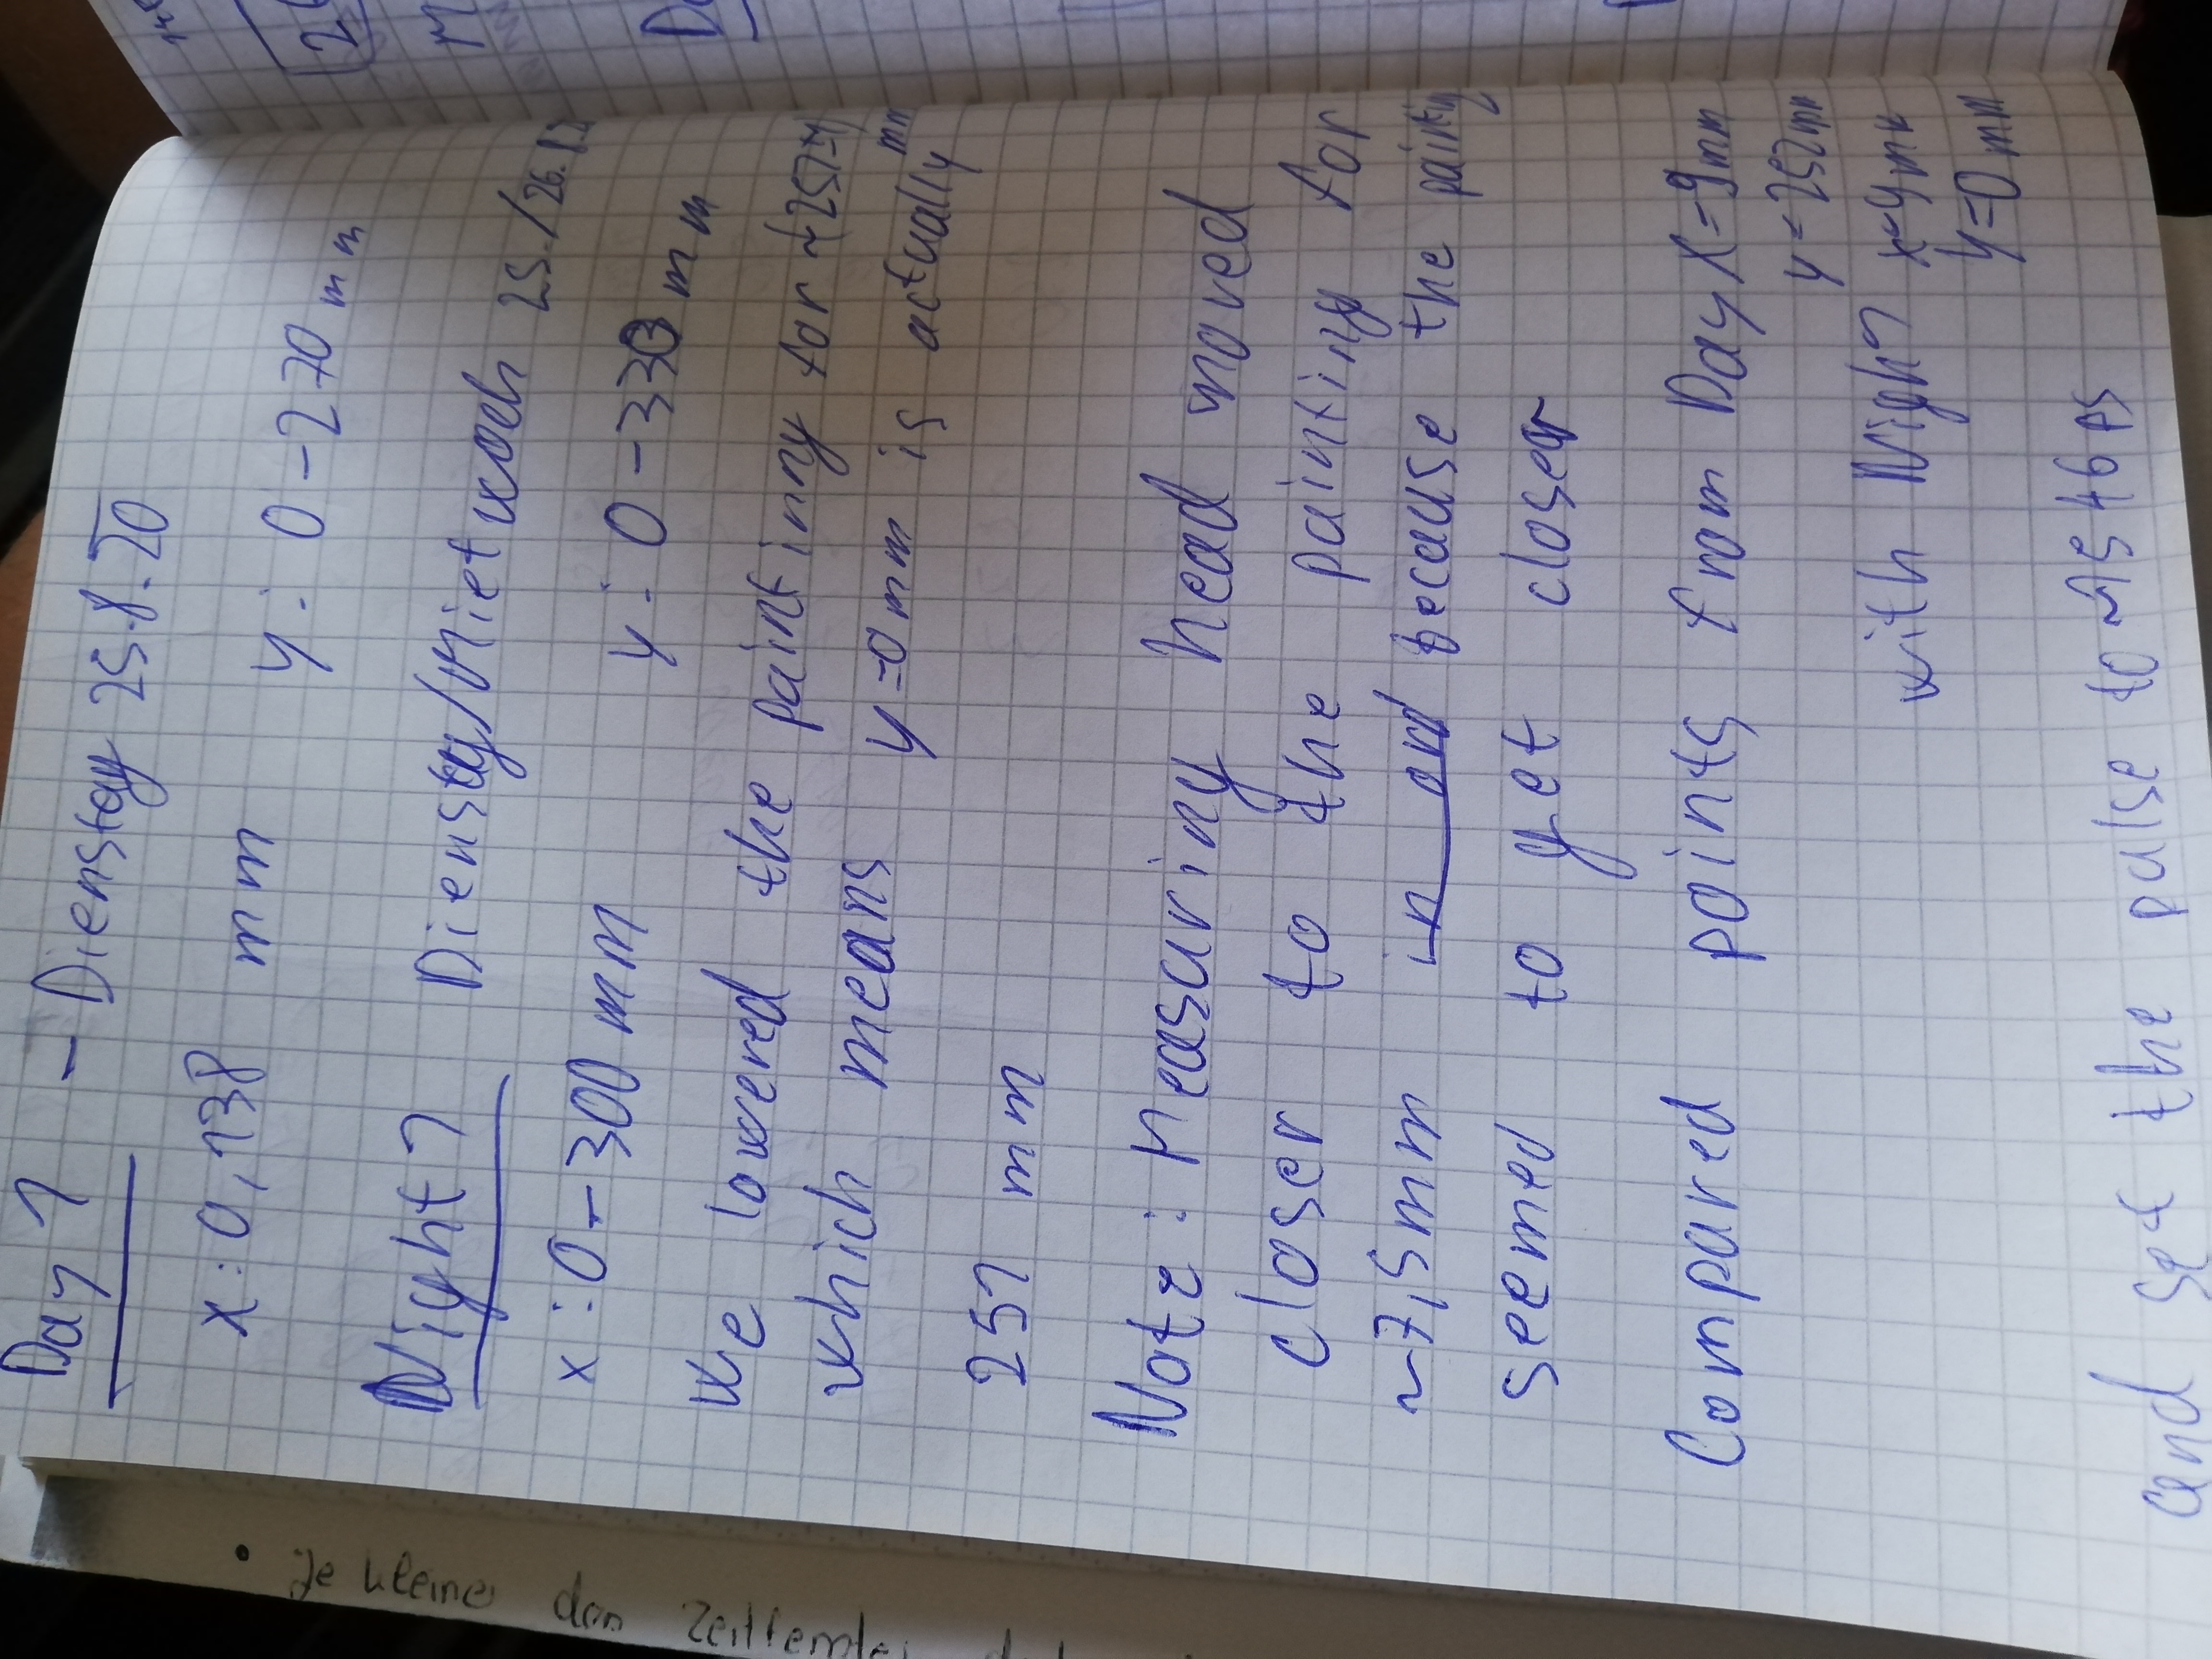 Day 1 - Dienstag 25.8.20
x: 0,138 mm
y: 0-270 mm
Night 1 Dienstag/Mietwoch 25./26.8.2
x: 0-300 mm
y: 0-330 mm
We lowered the paintinng for ~(251±1) mm
which means y=0mm is actually
251 mm
Note: Measuring head moved
closer to the painting for
~7,5mm in ord because the painting
seemed to get closer
Compared points from Day x=9mm
y=252mm
with Nigh1 x=9mm
y=0mm
and set the pulse to ~1546 ps
Je kleiner dan